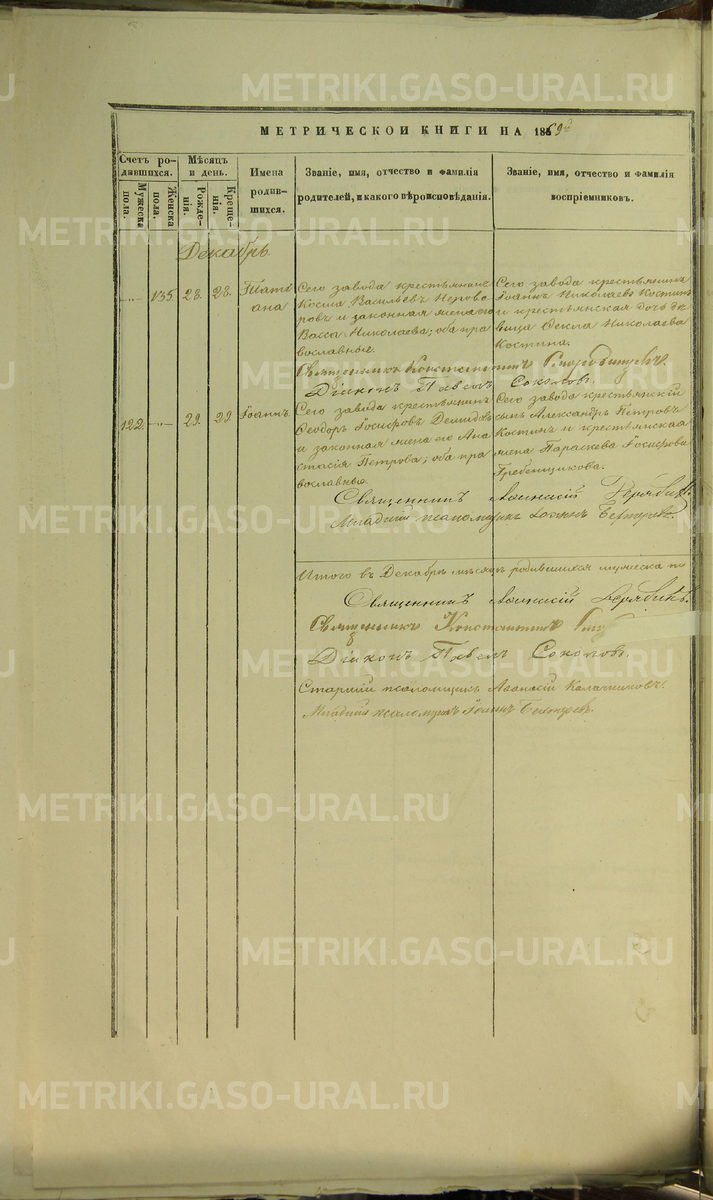 МЕТРИЧЕСКОЙ КНИГИ НА 1869й
Счетъ ро-
дившихся.
Мужеска
пола.
Женска
пола.
Мѣсяцъ
и день.
Рожде-
нія.
Креще-
нія.
Имена
родив-
шихся.
Званіе, имя, отчество и фамилія
родителей, и какого вѣроисповѣданія.
Званіе, имя, отчество и фамилія
воспріемниковъ.
Декабрь.
135
28.
28.
Тати
ана
Сего завода крестьянинъ
Косма Васильевъ
и законная жена его
Васса Николаева; оба пра
вославные.
Сего завода крестьянинъ
Іоаннъ Николаевъ Костинъ
и крестьянская дочь дѣ
вица Ѳекла Николаева
Костина.
Священникъ Константинъ
Діаконъ Павелъ Соколовъ.
122.
29.
29
Іоаннъ.
Сего завода крестьянинъ
Ѳеодоръ Іосифовъ
и законная жена его Ана
стасія Петрова; оба пра
вославные.
Сего завода крестьянскій
сынъ Александръ Петровъ
Костинъ и крестьянская
жена Параскева Іосифова
Гребенщикова.
Священникъ Аѳанасій
Младшій псаломщикъ Іоаннъ
Итого въ Декабрѣ мѣсяцѣ родившихся мужеска по
Священникъ Аѳанасій
Священникъ Константинъ
Діаконъ Павелъ Соколовъ.
Старшій псаломщикъ Аѳанасій Калачниковъ.
Младшій псаломщикъ Іоаннъ
METRIKI.GASO-URAL.RU